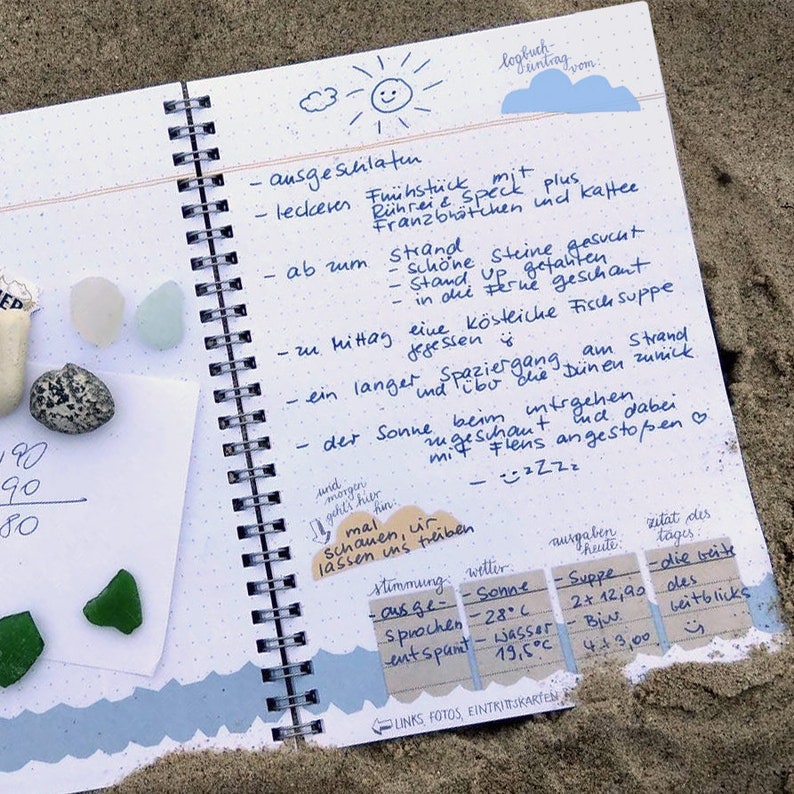 logbuch-
eintrag
vom:
- ausgeschlafen
- leckeres Frühstück mit
Rührei & Speck plus
Franzbrötchen und Kaffee
- ab zum Strand
- schöne Steine gesucht
- Stand up gefahren
- in die Ferne geschaut
- zu Mittag eine Köstliche Fischsuppe
gegessen
- ein langer Spaziergang am Strand
und über die Dünen zurück
- der Sonne beim untrgehen
zugeschaut und dabei
mit Flens angestoßen ♡
- zZZzz
und
morgen
geht's hier
hin:
mal
schauen, wir
lassen uns treiben
stimmung:
- ausge-
sprochen
entspannt
wetter:
- Sonne
- 28°C
- Wasser
19,5°C
ausgaben
heute:
- Suppe
2 + 12,90
- Bjw.
4 + 3,00
zitat des
tages:
- die weite
des
Weitblicks
LINKS, FOTOS, EINTRITTSKARTEN
90
80